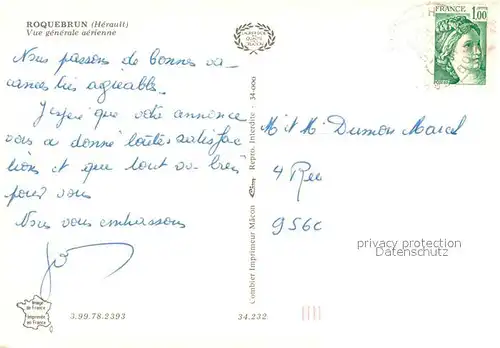 ROQUEBRUN (Hérault)
Vue générale aérienne
FRANCE
1,00
Nous passons de bonnes va_
cances très agréables_
J'espère que votre annonce
vous a donné toutes satisfac_
tions et que tout va bien
pour vous
Nous vous embrassons
Mr et Me Dumon Marcel
4 Rue
956c
privacy protection
Datenschutz
Combier Imprimeur Mâcon
Repro. Interdite - 34-006
Image
de France
Imprimée
en France
3.99.78.2393
34.232.